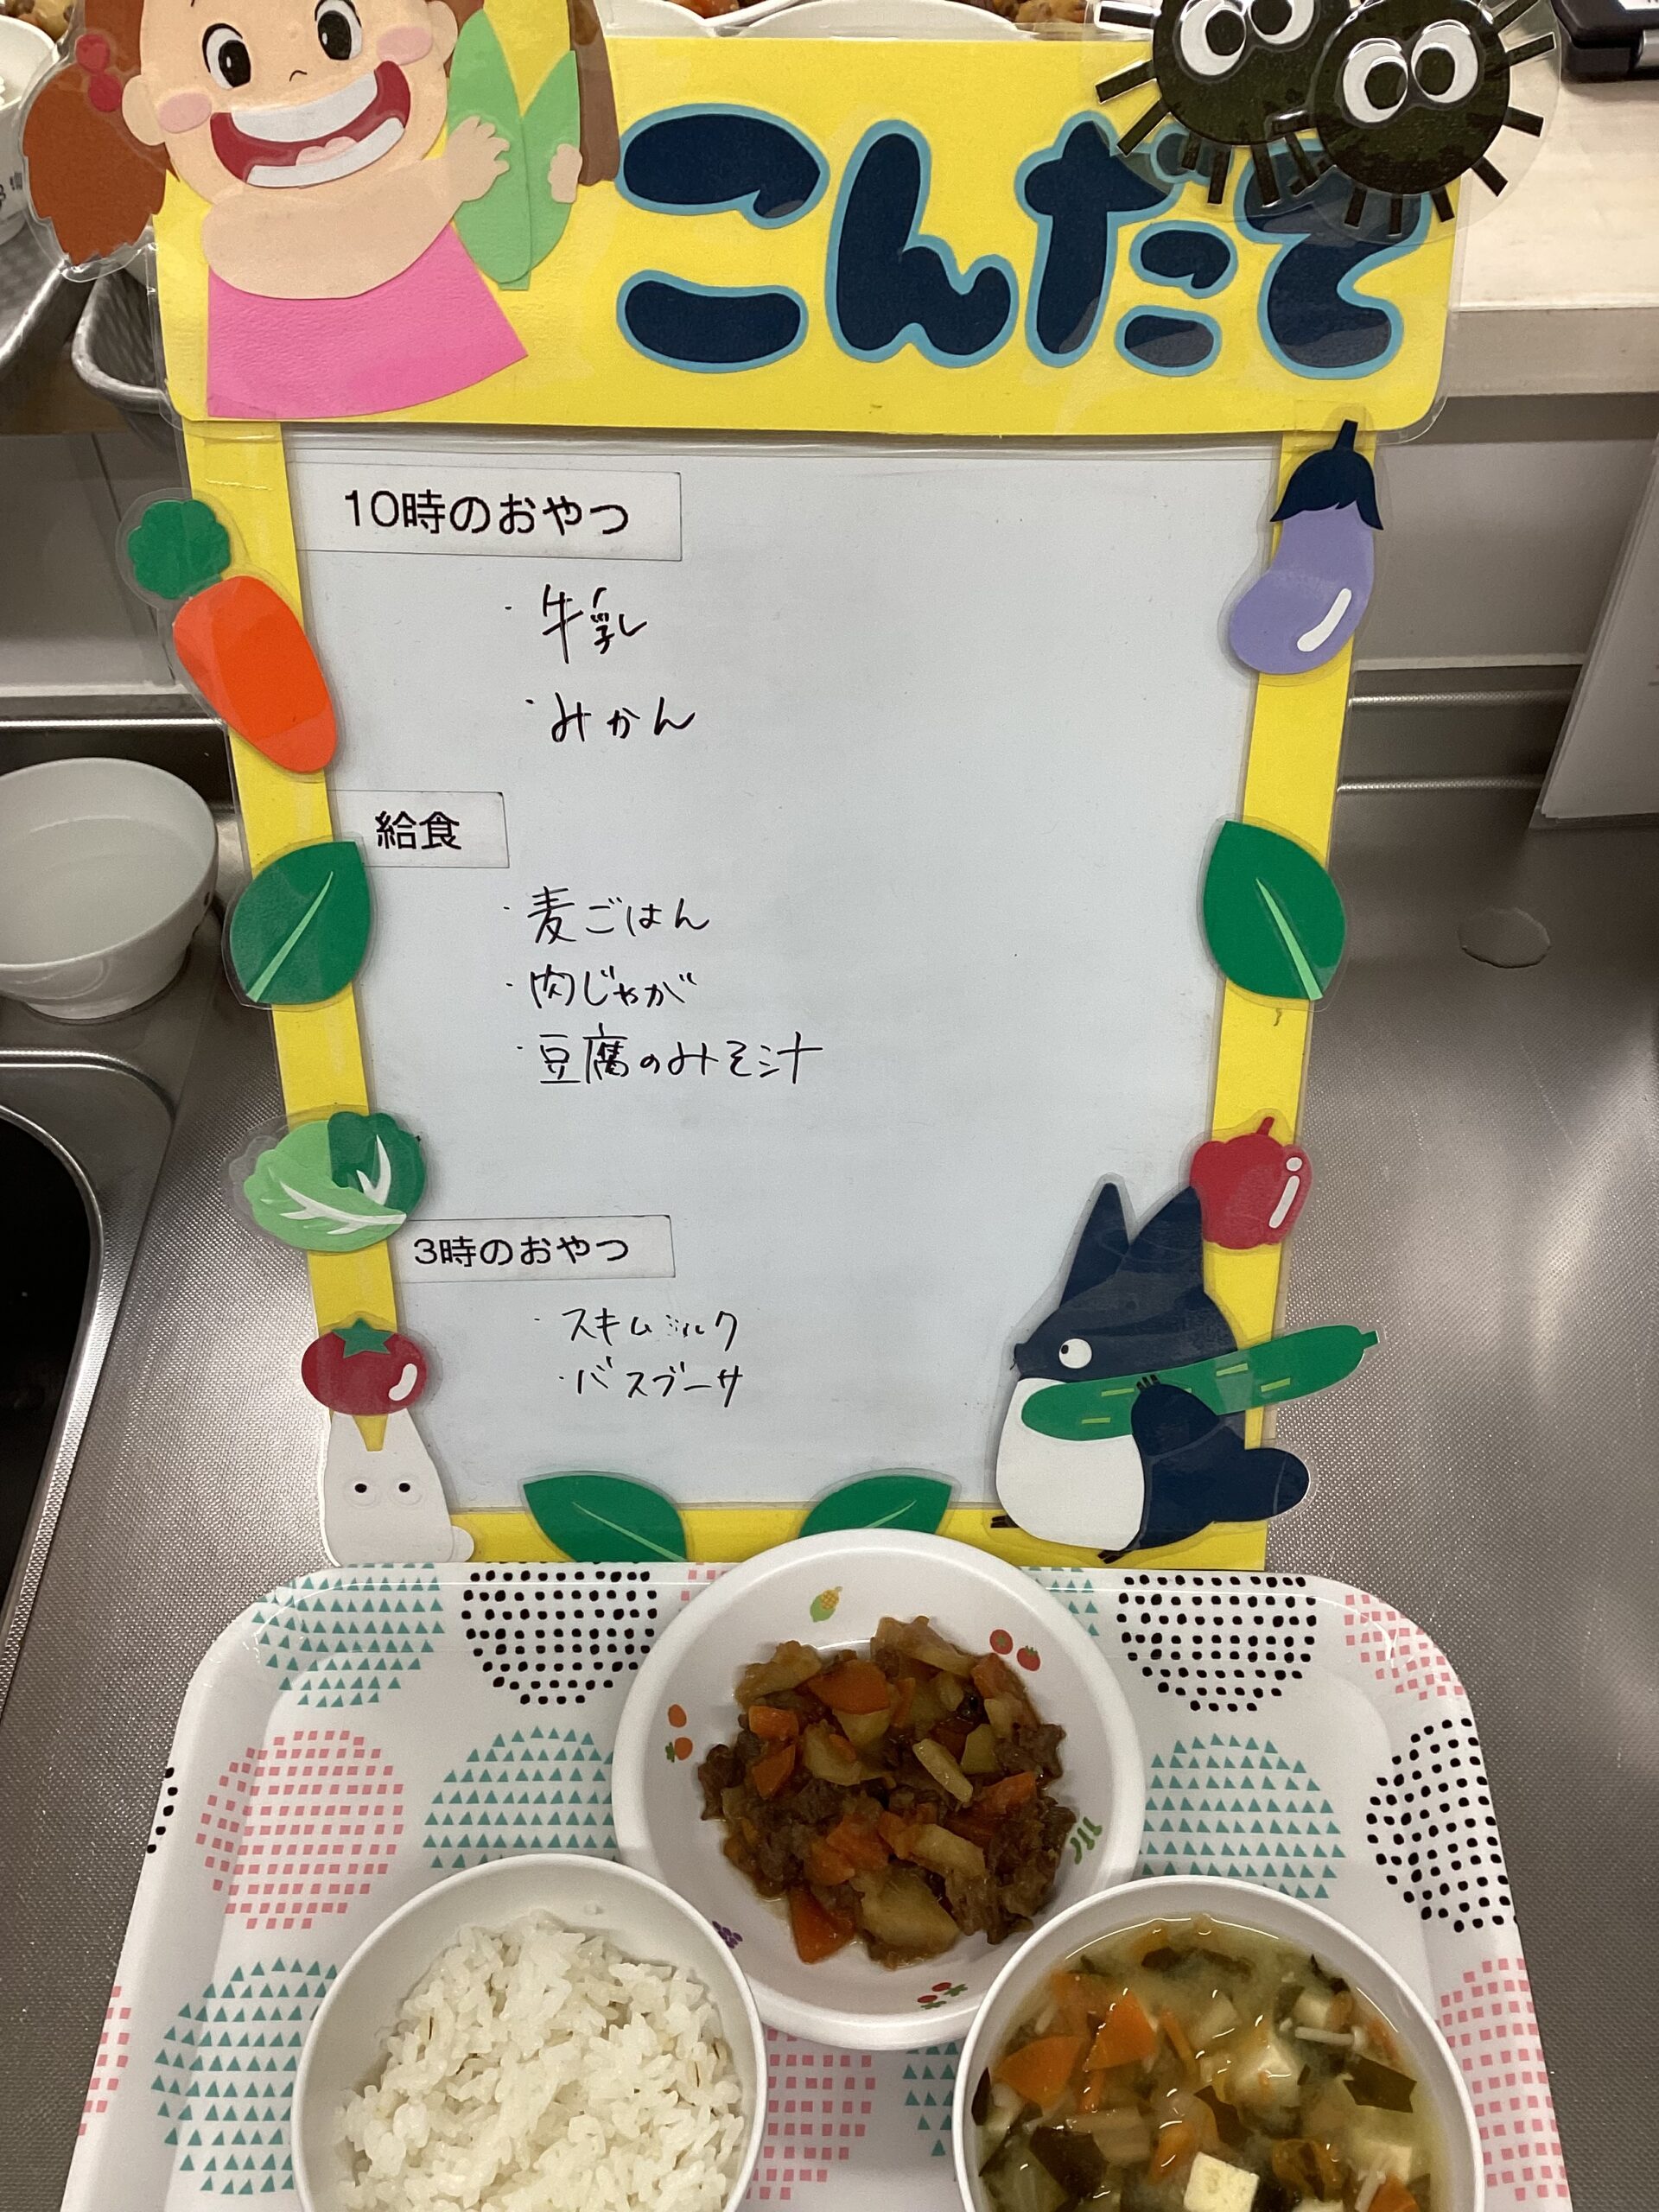 こんだて
10時のおやつ
・牛乳
・みかん
給食
・麦ごはん
・肉じゃが
・豆腐のみそ汁
3時のおやつ
・スキムミルク
・バスブーサ